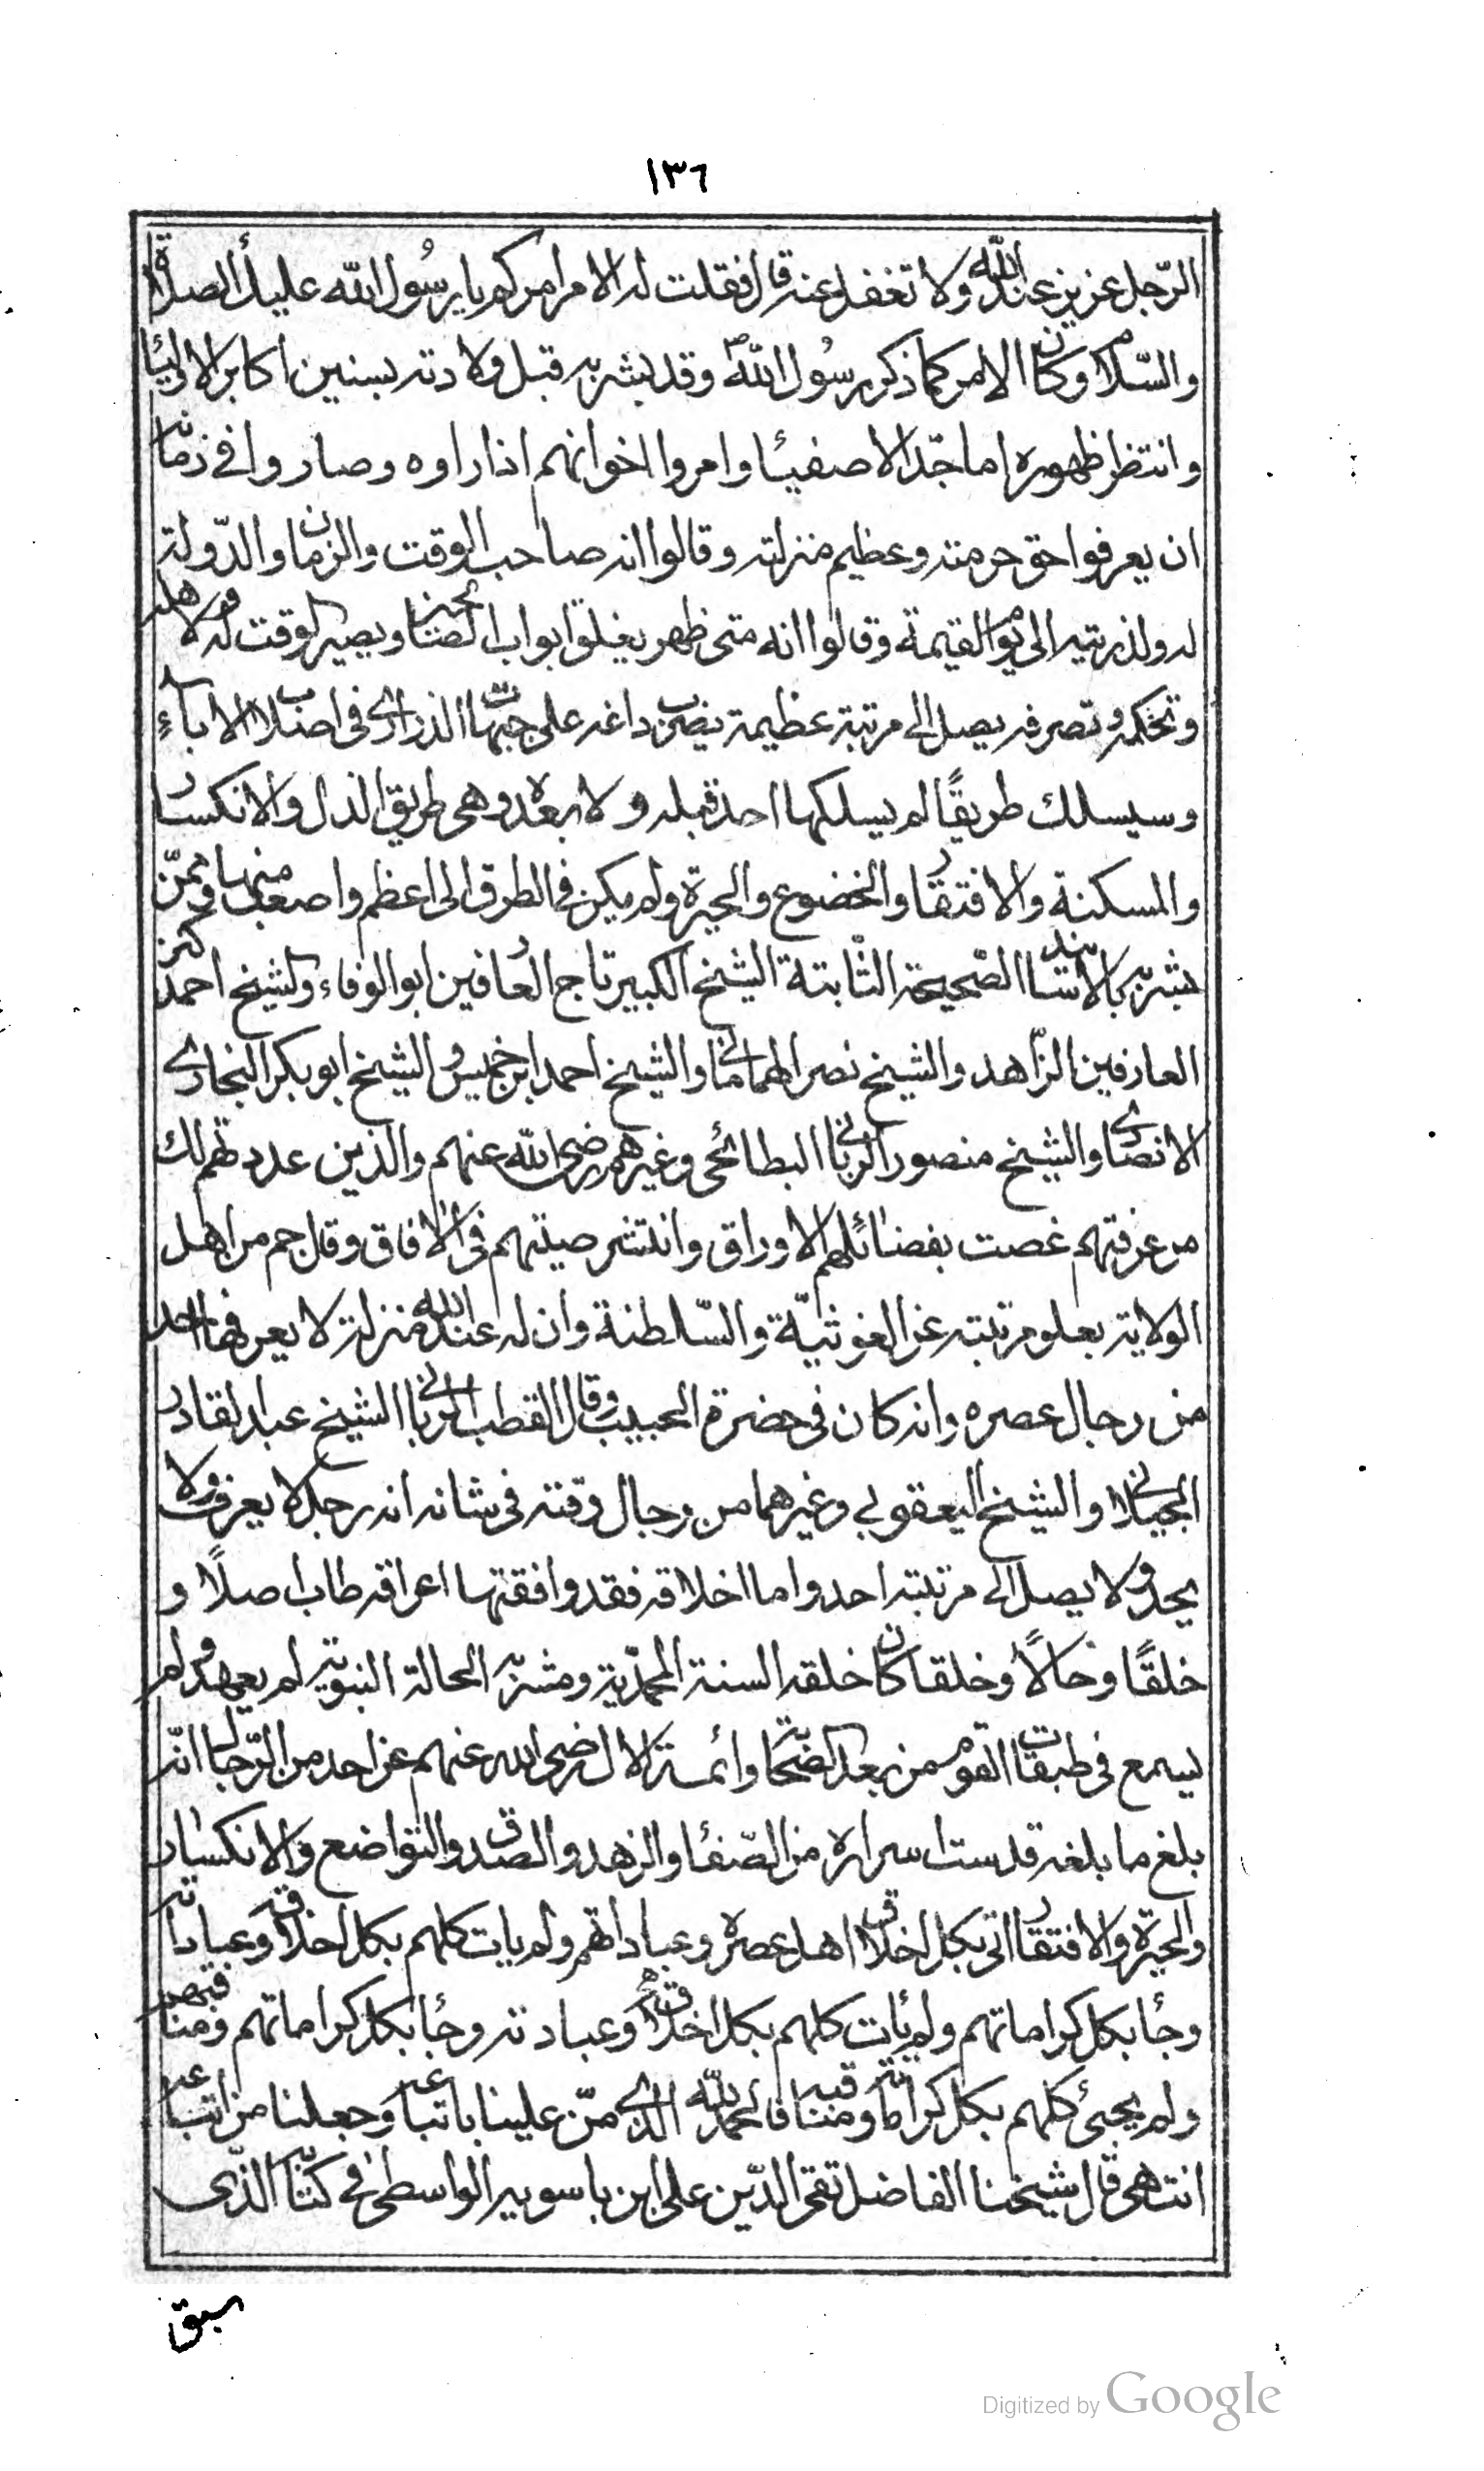 ١٣٦
الرّجل عزيز عند الله ولا تغفل عنه قال فقلت له الامر امركم يا رسُول الله عليك الصلاة
والسّلام وكان الامر كما ذكر رسُول اللهؐ وقد بشر به قبل ولادته بسنين اكابر الاوليا
وانتظر ظهوره اماجّد الاصفيا وامروا اخوانهم اذا راوه وصاروا في زمانه
ان يعرفوا حق حرمته وعظيم منزلته وقالوا انه صاحب الوقت والزمان والدّولة
له ولذريته الى يوم القيمة وقالوا انه متى ظهر يغلق ابواب المحن ويصير الوقت له ولاهله
وتحكمه وتصرفه يصل الى مرتبة عظيمة يضرب داغه على جبهات الذراري في اصلاب الاباءِ
وسيسلك طريقًا لم يسلكها احد قبله ولا بعده وهي طريق الذل والانكسار
والمسكنة والافتقار والخضوع والحيرة ولم يكن في الطرق الى اعظم واصعب منها وممّن
بشر به بالاسانيد الصّحيحة الثابتة الشيخ الكبير تاج العارفين ابو الوفاء والشيخ احمد كنز
العارفين الزّاهد والشيخ نصر الهماماني والشيخ احمد ابن خميس والشيخ ابو بكر النجاري
الانصاري والشيخ منصور الرباني البطائحى وغيرهم رضى الله عنهم والذين عددتهم لك
من عرفتهم غصت بفضائلهم الاوراق وانتشر صيتهم في الافاق وقال جم من اهل
الولاية بعلو مرتبته عن الغوثيّة والسّلطنة وان له عند الله منزلة لا يعرفها احد
من رجال عصره وانه كان في حضرة الحبيب وقال القطب الرباني الشيخ عبد القادر
الجيلاني والشيخ اليعقوبي وغيرهما من رجال وقته في شانه انه رجل لا يعرف ولا
يحد ولا يصل الى مرتبته احد واما اخلاقه فقد وافقتها اعراقه طاب اصلًا و
خلقًا وحالًا وخلقا كان خلقه السنة المحمّدية ومشربه الحالة النبوية لم يعهد ولم
يسمع في طبقات القوم من بعد الصّحابة وائمة الال رضى الله عنهم عن احد من الرّجال انّه
بلغ ما بلغه قدست اسراره من الصّفا والزهد والصدق والتواضع والانكسار
والحيرة والافتقار اتى بكل اخلاق اهل عصره وعباداتهم ولم يات كلهم بكل اخلاقه وعباداته
وجا بكل كراماتهم ولم يات كلهم بكل اخلاقه وعبادته وجا بكل كراماتهم ومناقبهم
ولم يجئ كلهم بكل كراماته ومناقبه فالحمد لله الذي منّ علينا باتباعه وجعلنا من اتباعه
انتهى قال شيخنا الفاضل تقى الدّين على ابن باسويه الواسطى في كتابه الذّي
سبق
Digitized by Google